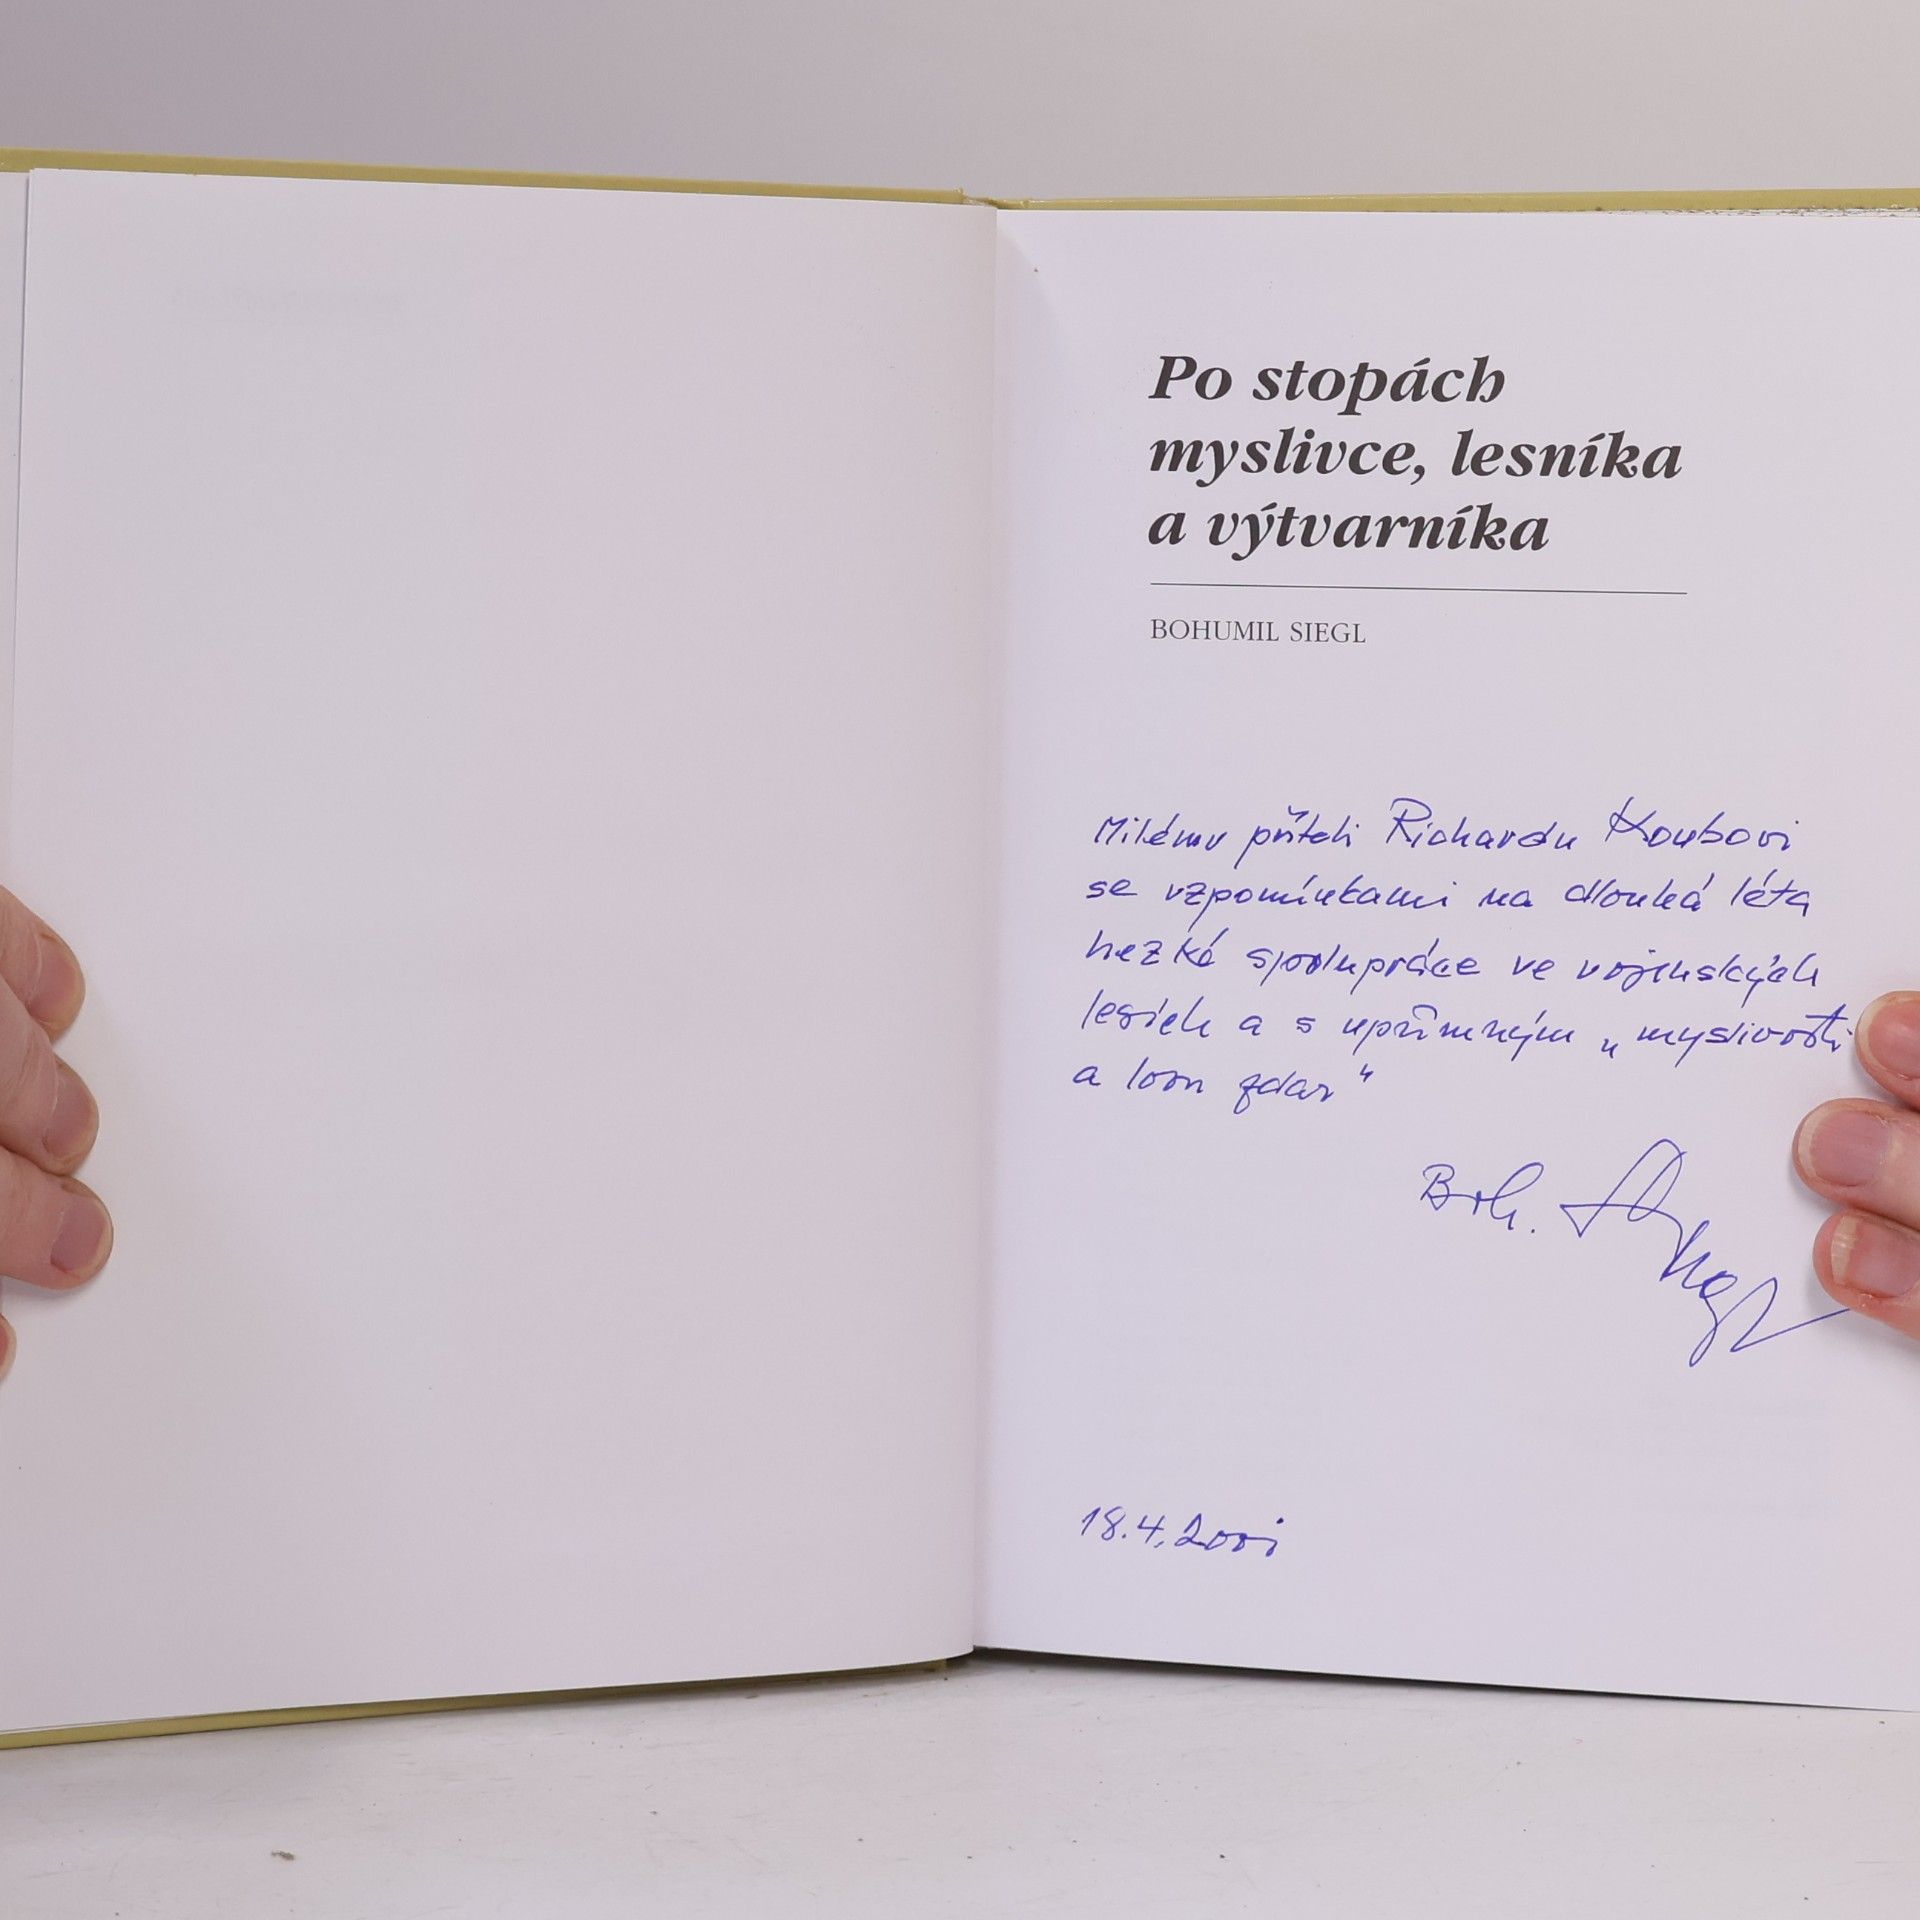 Po stopách
myslivce, lesníka
a výtvarníka
BOHUMIL SIEGL
Milému příteli Richardu Koubovi
se vzpomínkami na dlouhá léta
hezké spolupráce ve vojenských
lesích a s upřímným „myslivosti
a lovu zdar"
Boh. Siegl
18.4.2001